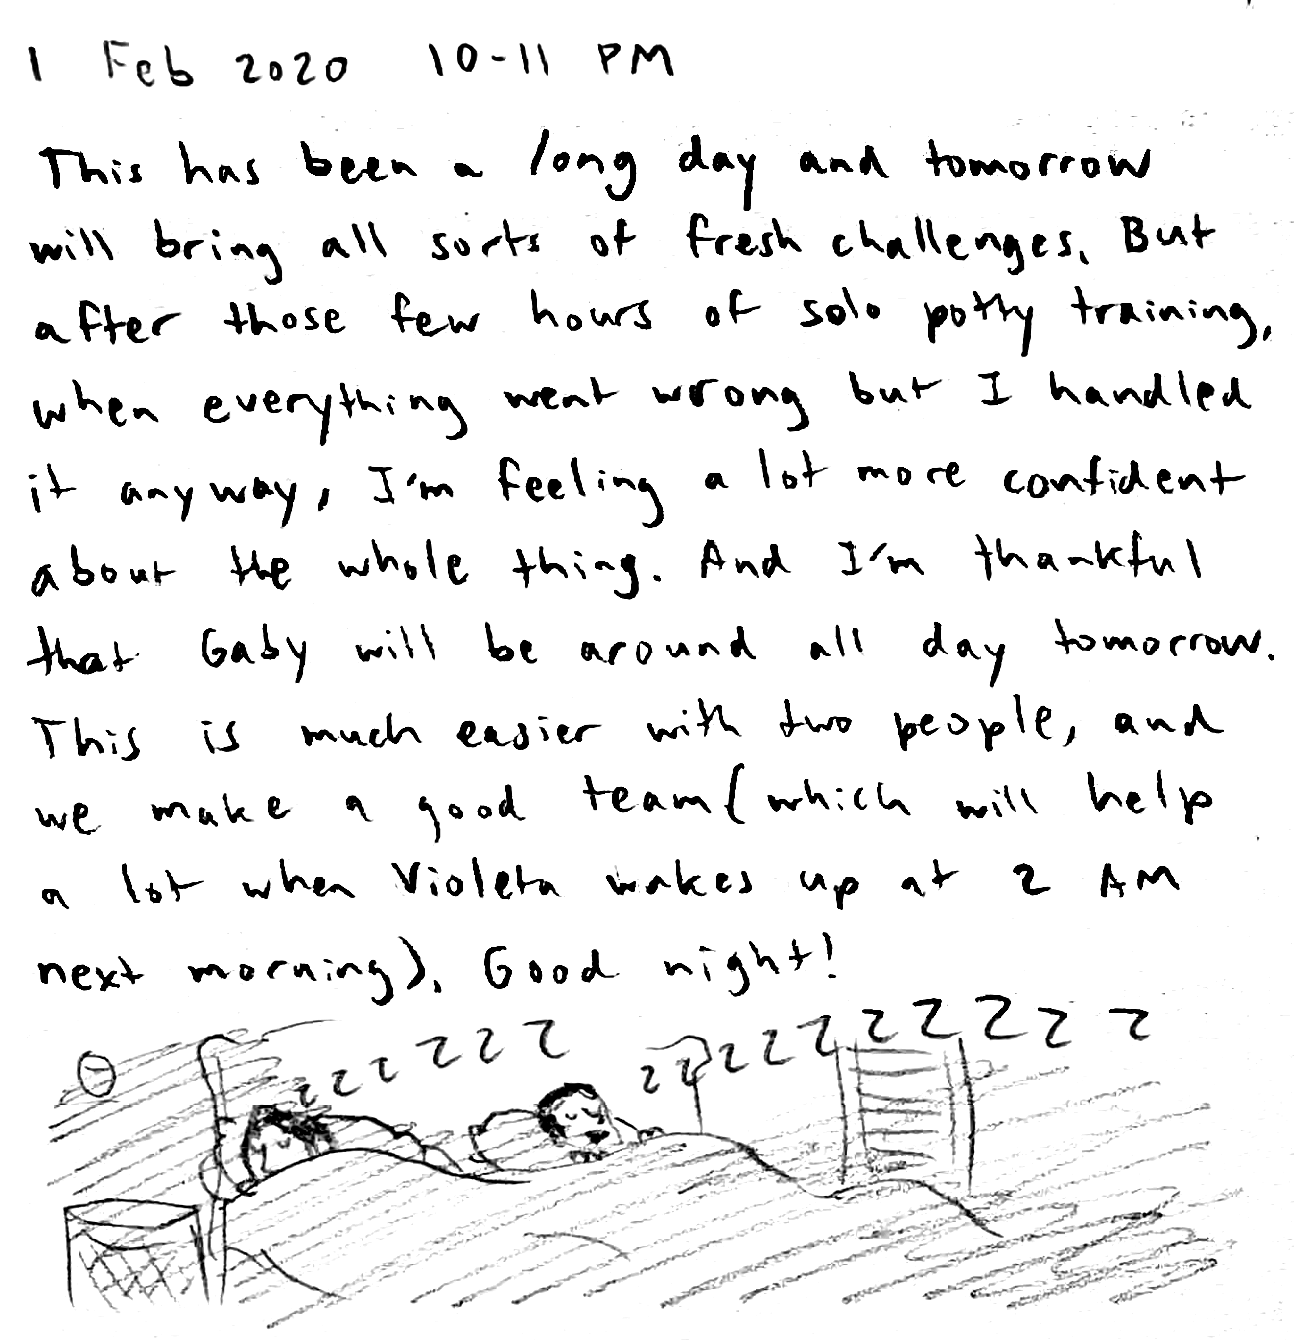 1 Feb 2020 10-11 PM
This has been a long day and tomorrow
will bring all sorts of fresh challenges. But
after those few hours of solo potty training,
when everything went wrong but I handled
it anyway, I'm feeling a lot more confident
about the whole thing. And I'm thankful
that Gaby will be around all day tomorrow.
This is much easier with two people, and
we make a good team (which will help
a lot when Violeta wakes up at 2 AM
next morning). Good night!
z z z z z z z z z z z z z z z z